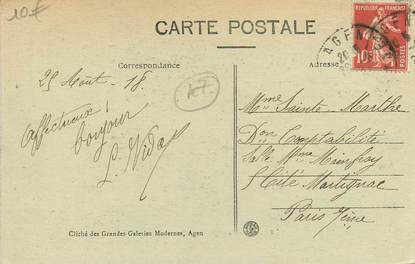 10 F
CARTE POSTALE
Correspondance
Adresse
RÉPUBLIQUE FRANÇAISE
10
POSTES
AGEN
25 Août 18.
47
affectueux
bonjour
L. Vidal
Mme Sainte-Marthe
Don Comptabilité
Salle Mme
Cité Martignac
Paris 7ème
Cliché des Grandes Galeries Modernes, Agen